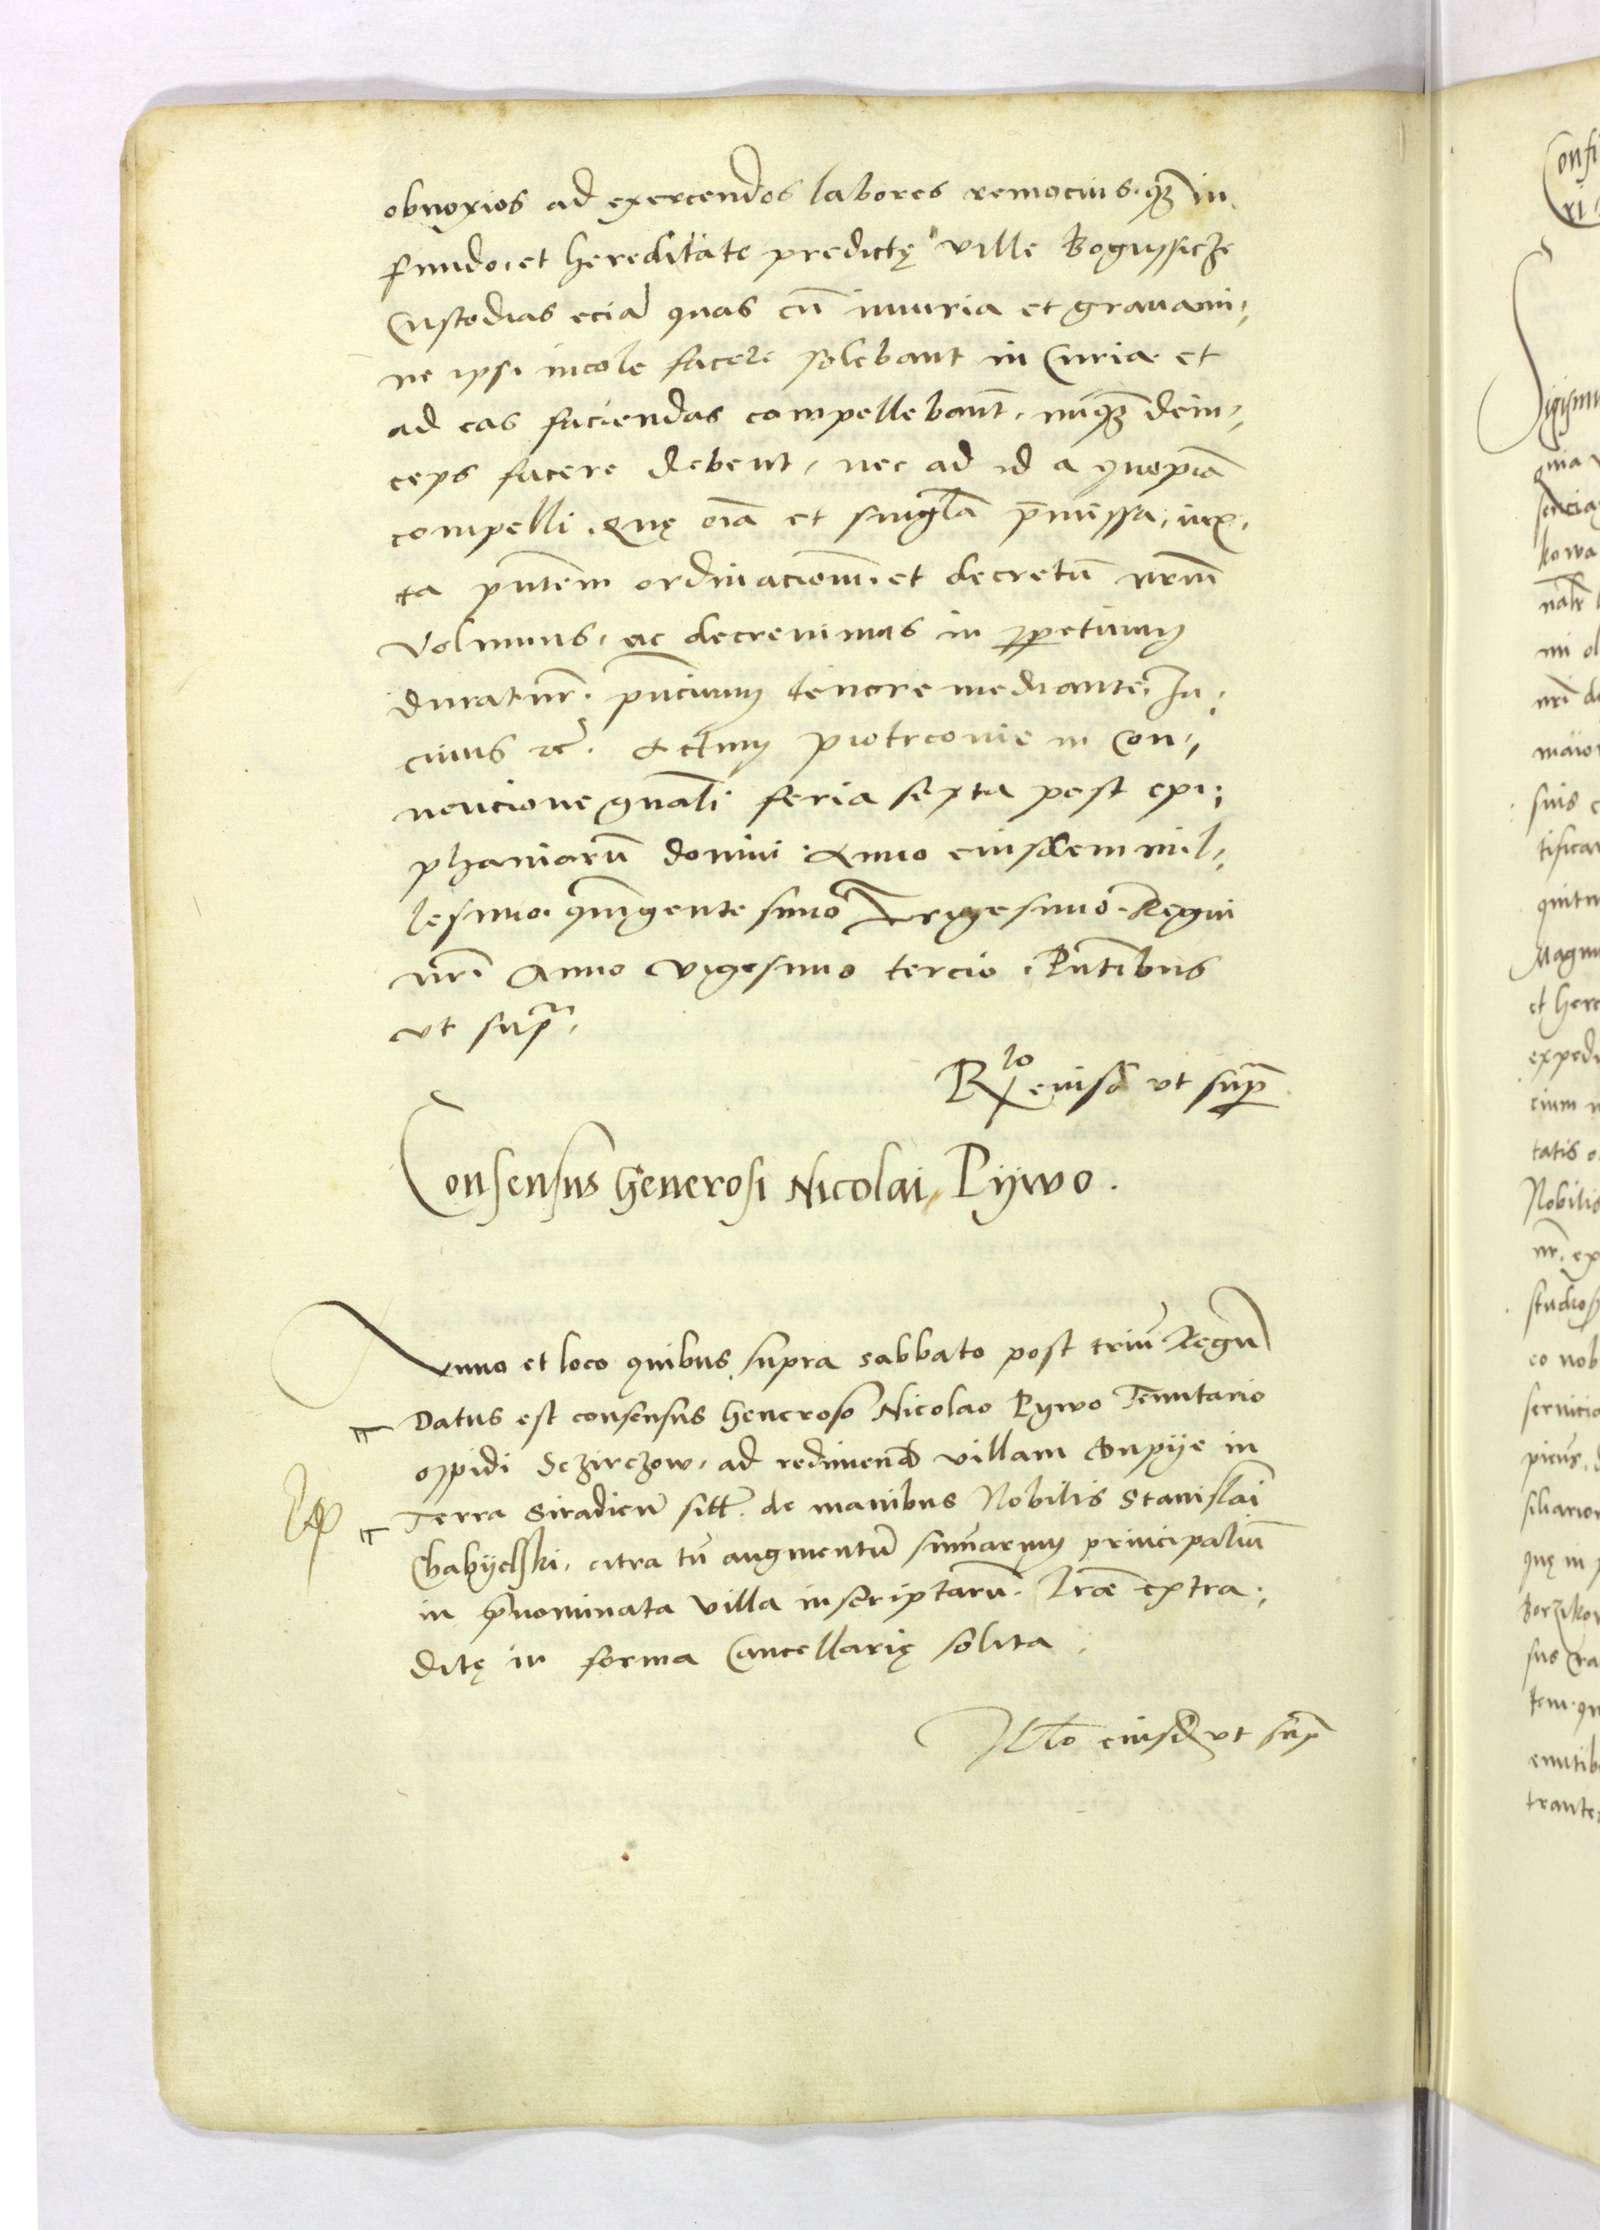 obnoxios ad exercendos labores remocius. q̄ꝫ in
fundo. et hereditate predictę ville Bogussicze
Custodias eciā quas cū iniuria et grauami,,
ne ipsi incole facere solebant in Curia et
ad eas faciendas compellebant̄, nuq̄ꝫ dein,,
ceps facere debent, nec ad id a quopiā
compelli. Quę oīa et singl̄a p̄missa, iux,
ta pn̄tem ordinacionē. et decretū nrm̄
volumus, ac decreuimus in ꝑpetuum
duratur̄. pn̄cium tenore mediante. In
cuius rē. Actum piotrcouie in Con,,
uencione gn̄ali feria sexta post epi,,
phaniarū domini. Anno eiusdem mil,,
lesimo. quīgentesimo Trigesimo. Regni
nrī Anno vigesimo tercio. Pn̄tibus
vt sup̄.
Rlo eiusd vt sup̄
Consensus Generosi Nicolai Pywo.
Anno et loco quibus supra sabbato post triū Regū
Datus est consensus Generoso Nicolao Pywo Tenutario
oppidi Sczirczow, ad redimend villam Supye in
Terra Siradien̄ sitt̄. de manibus Nobilis Stanislai
Chabyelski, citra tn̄ augmentū sum̄arum principaliū
in p̄nominata villa inscriptarū. Lr̄ae extra,
ditę in forma Cancellarię solita.
Rlo eiusd vt sup̄
Confi
ri
Sigismu
gnia
sencia
kowa
nalr̄
mi ol
nrī d
maior
suis c
tificar
quitu
Magn
et here
expedi
cium
tatis
Nobilis
nr̄. ex
studios
eo nob
seruicio
picus,
siliario
quę in p
Borziko
sus Cra
tem. qu
enutib
trante